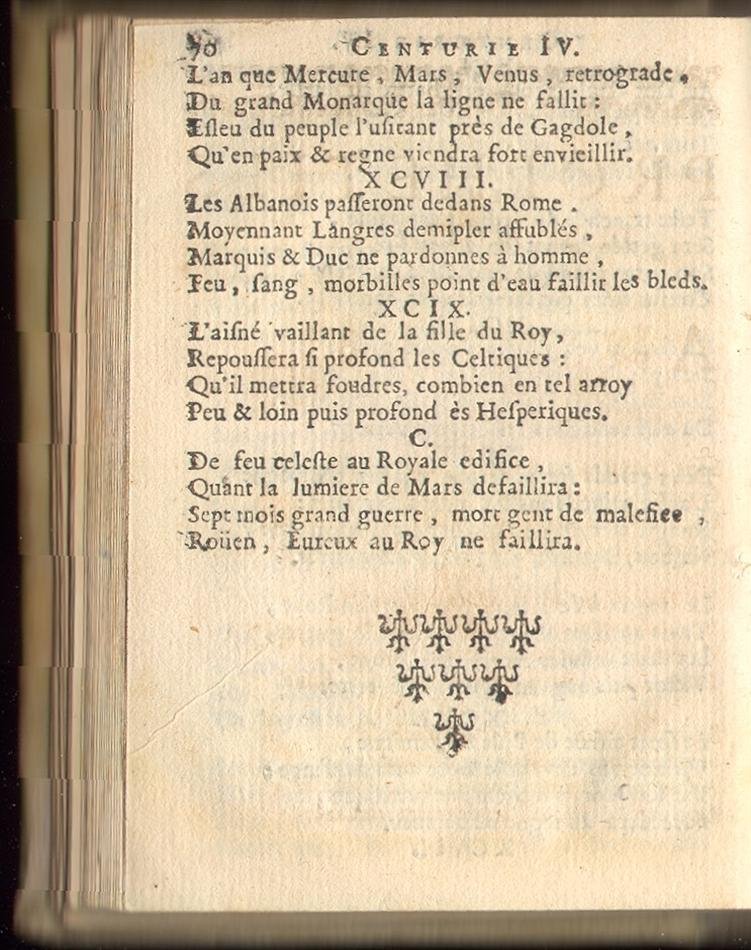 70 CENTURIE IV.
L'an que Mercure, Mars, Venus, retrograde.
Du grand Monarque la ligne ne faillit:
Esleu du peuple l'usitant près de Gagdole,
Qu'en paix & regne viendra fort envieillir.
XCVIII.
Les Albanois passeront dedans Rome.
Moyennant Langres demipler affublés,
Marquis & Duc ne pardonnes à homme,
Feu, sang, morbilles point d'eau faillir les bleds.
XCIX.
L'aisné vaillant de la fille du Roy,
Repoussera si profond les Celtiques:
Qu'il mettra foudres, combien en tel arroy
Peu & loin puis profond ès Hesperiques.
C.
De feu celeste au Royale edifice,
Quant la lumiere de Mars defaillira:
Sept mois grand guerre, mort gent de malefice,
Roüen, Eureux au Roy ne faillira.